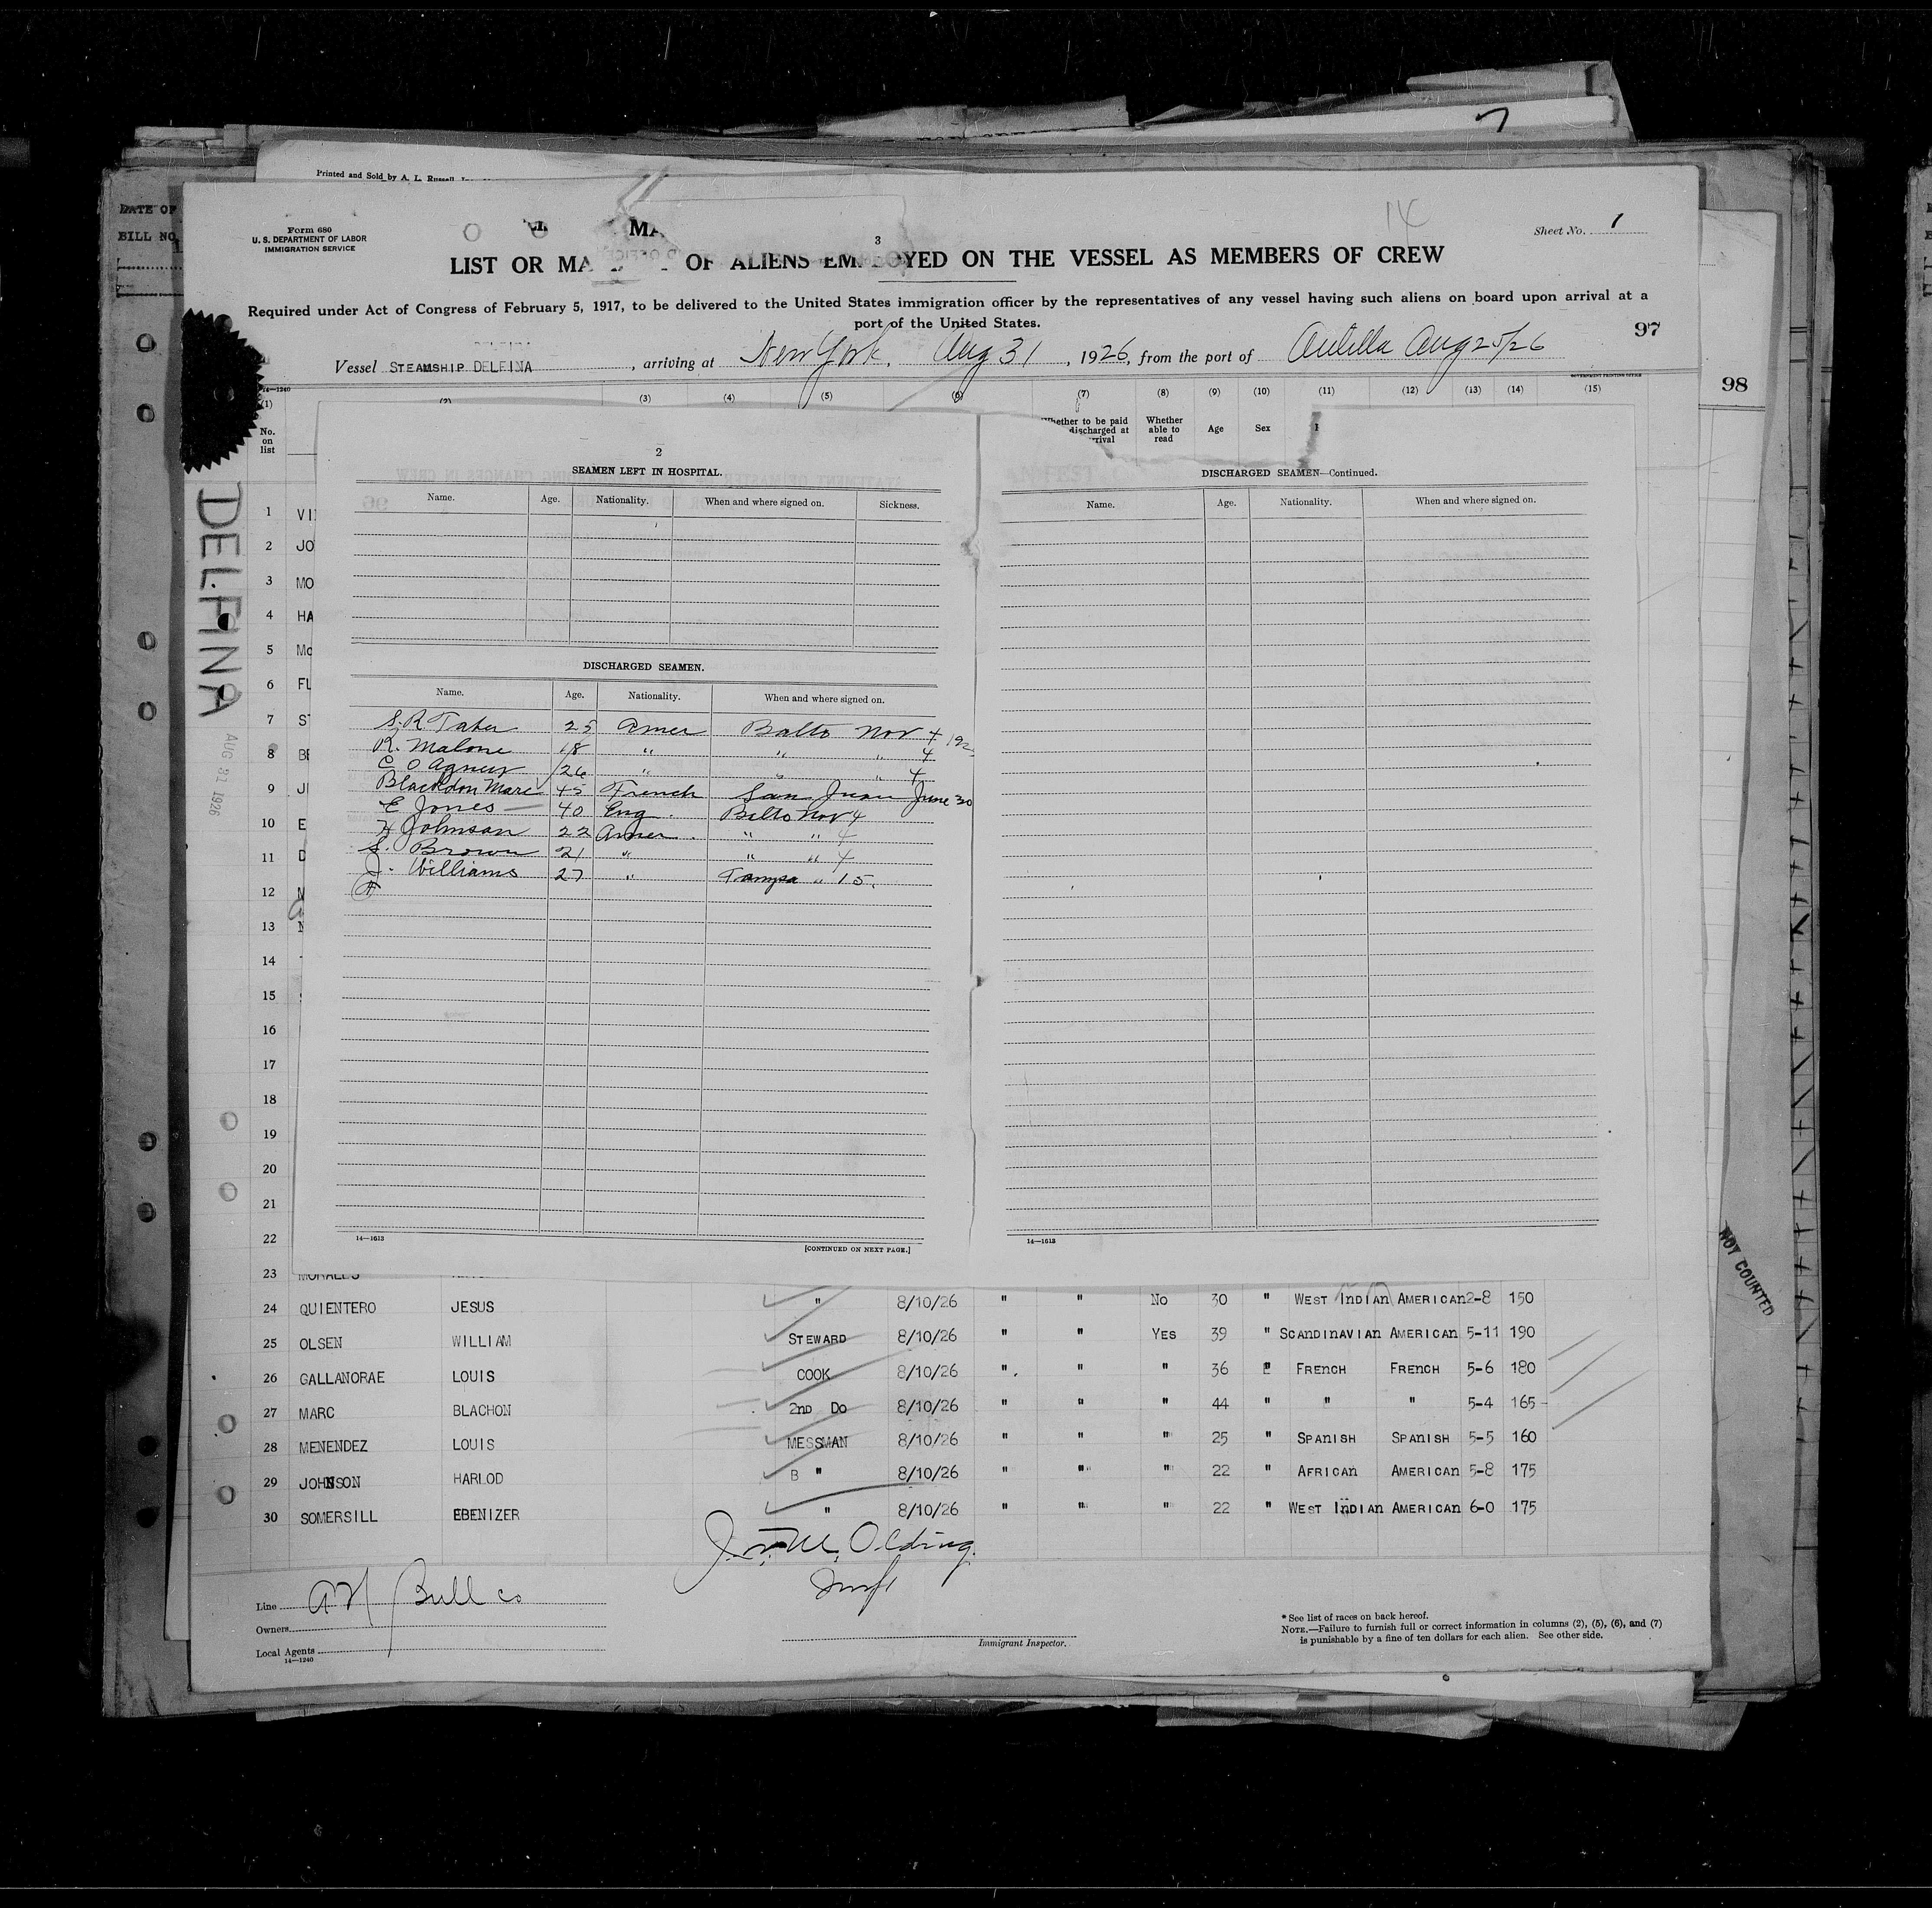 Printed and Sold by A. L. Russell
DATE OF
BILL NO.
Form 680
U. S. DEPARTMENT OF LABOR
IMMIGRATION SERVICE
14
Sheet No. 1
3
LIST OR MA OF ALIENS EMPLOYED ON THE VESSEL AS MEMBERS OF CREW
Required under Act of Congress of February 5, 1917, to be delivered to the United States immigration officer by the representatives of any vessel having such aliens on board upon arrival at a
port of the United States.
97
98
Vessel STEAMSHIP DELFINA, arriving at New York, Aug 31, 1926, from the port of Antilla Aug 25/26
14—1240
GOVERNMENT PRINTING OFFICE
(1) (2) (3) (4) (5) (6) (7) (8) (9) (10) (11) (12) (13) (14) (15)
No. on list
Whether to be paid discharged at arrival
Whether able to read
Age
Sex
DELFINA
AUG 31 1926
2
SEAMEN LEFT IN HOSPITAL.
Name. Age. Nationality. When and where signed on. Sickness.
DISCHARGED SEAMEN.
Name. Age. Nationality. When and where signed on.
S. R Taber 25 Amer Balto Nov 4 192
R. Malone 18 " " " 4
C O Agnew 26 " " " 4
Blachdon Marc 45 French San Juan June 30
E Jones 40 Eng. Balto Nov 4
H Johnson 22 Amer. " " 4
S. Brown 21 " " " 4
J. Williams 27 " Tampa " 15.
14—1613
[CONTINUED ON NEXT PAGE.]
DISCHARGED SEAMEN—Continued.
Name. Age. Nationality. When and where signed on.
14—1613
1 VI
2 JO
3 MO
4 HA
5 Mc
6 FL
7 ST
8 BE
9 J
10 E
11 D
12 M
13 N
14
15
16
17
18
19
20
21
22
23 MORALES
24 QUIENTERO JESUS " 8/10/26 " " No 30 " WEST INDIAN AMERICAN 2-8 150
25 OLSEN WILLIAM STEWARD 8/10/26 " " YES 39 " SCANDINAVIAN AMERICAN 5-11 190
26 GALLANORAE LOUIS COOK 8/10/26 " " " 36 " FRENCH FRENCH 5-6 180
27 MARC BLACHON 2ND DO 8/10/26 " " " 44 " " " 5-4 165
28 MENENDEZ LOUIS MESSMAN 8/10/26 " " " 25 " SPANISH SPANISH 5-5 160
29 JOHNSON HARLOD B " 8/10/26 " " " 22 " AFRICAN AMERICAN 5-8 175
30 SOMERSILL EBENIZER " 8/10/26 " " " 22 " WEST INDIAN AMERICAN 6-0 175
NOT COUNTED
Line A H Bull Co
Owners
Local Agents
14—1240
Immigrant Inspector.
* See list of races on back hereof.
NOTE.—Failure to furnish full or correct information in columns (2), (5), (6), and (7)
is punishable by a fine of ten dollars for each alien. See other side.